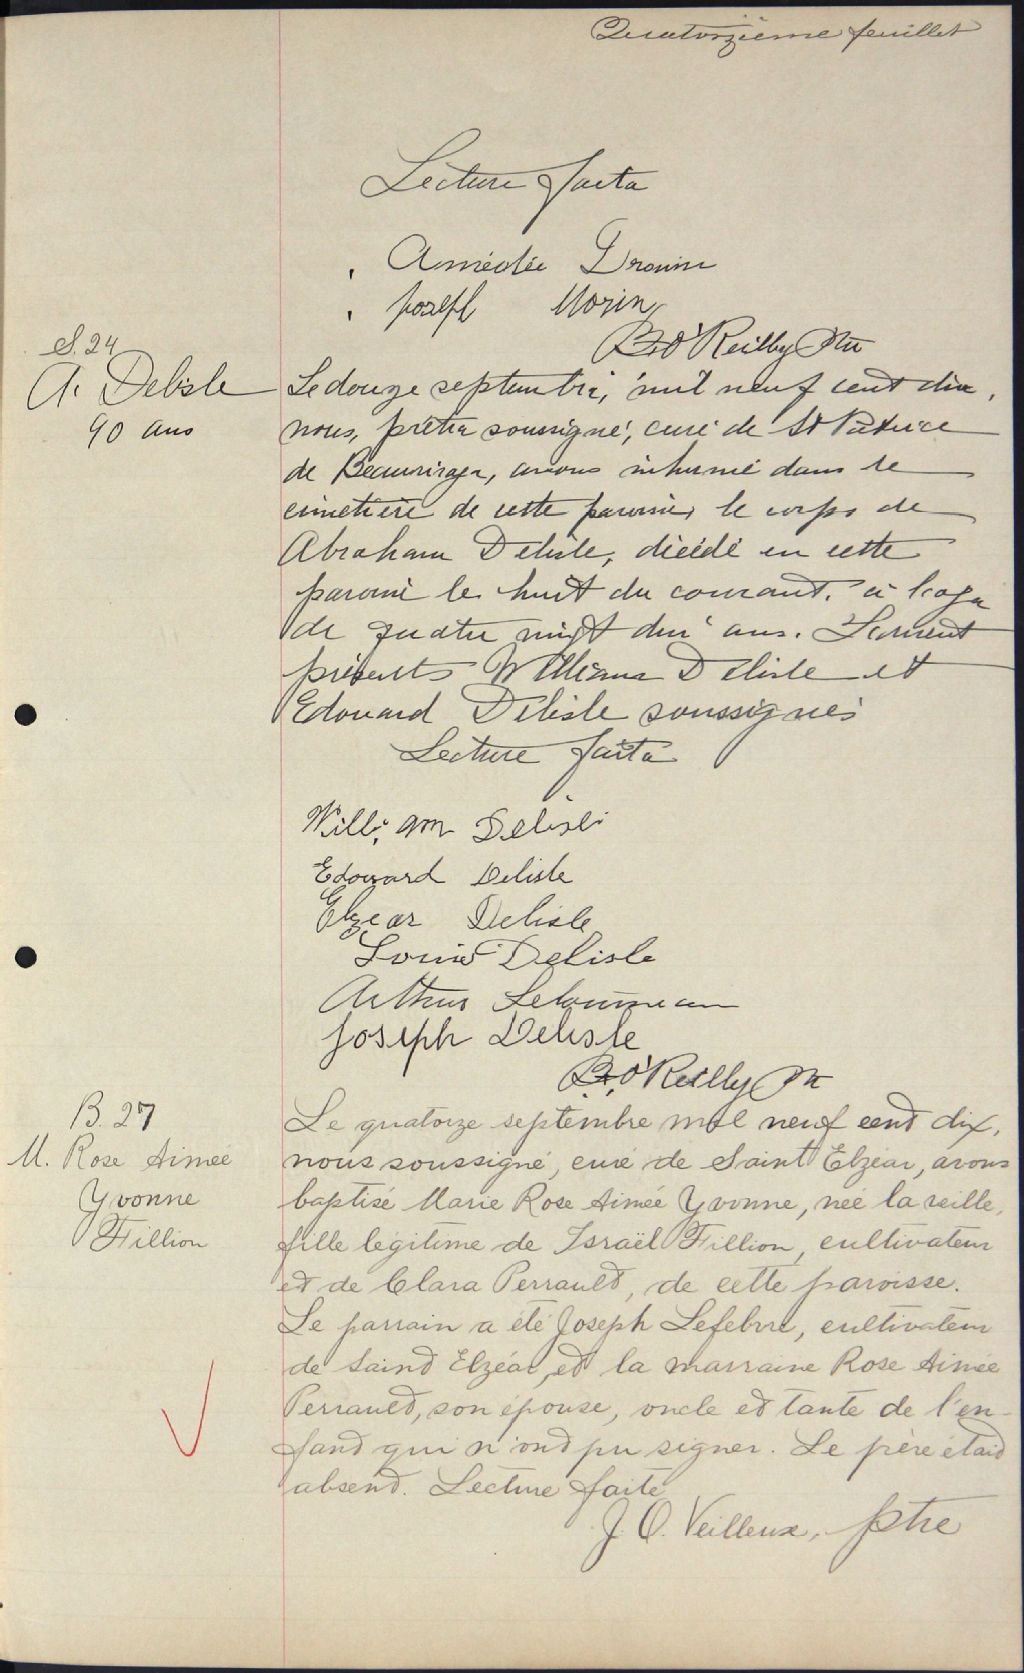 Quatorzième feuillet
Lecture faite
Amédée Drouin
Joseph Morin
B. O'Reilly Ptre
S. 24
A. Delisle
90 ans
Le douze septembre, mil neuf cent dix,
nous, prêtre soussigné, curé de St Patrice
de Beaurivage, avons inhumé dans le
cimetière de cette paroisse, le corps de
Abraham Delisle, décédé en cette
paroisse le huit du courant, à l'age
de quatre vingt dix ans. Furent
présents William Delisle et
Edouard Delisle soussignés
Lecture faite
William Delisle
Edouard Delisle
Elzear Delisle
Louis Delisle
Arthur Letourneau
Joseph Delisle
B. O'Reilly Ptre
B. 27
M. Rose Aimée
Yvonne
Fillion
Le quatorze septembre mil neuf cent dix,
nous soussigné, curé de Saint Elzéar, avons
baptisé Marie Rose Aimée Yvonne, née la veille,
fille légitime de Israël Fillion, cultivateur
et de Clara Perrault, de cette paroisse.
Le parrain a été Joseph Lefebvre, cultivateur
de Saint Elzéar, et la marraine Rose Aimée
Perrault, son épouse, oncle et tante de l'en-
fant qui n'ont pu signer. Le père était
absent. Lecture faite
J. O. Veilleux, ptre